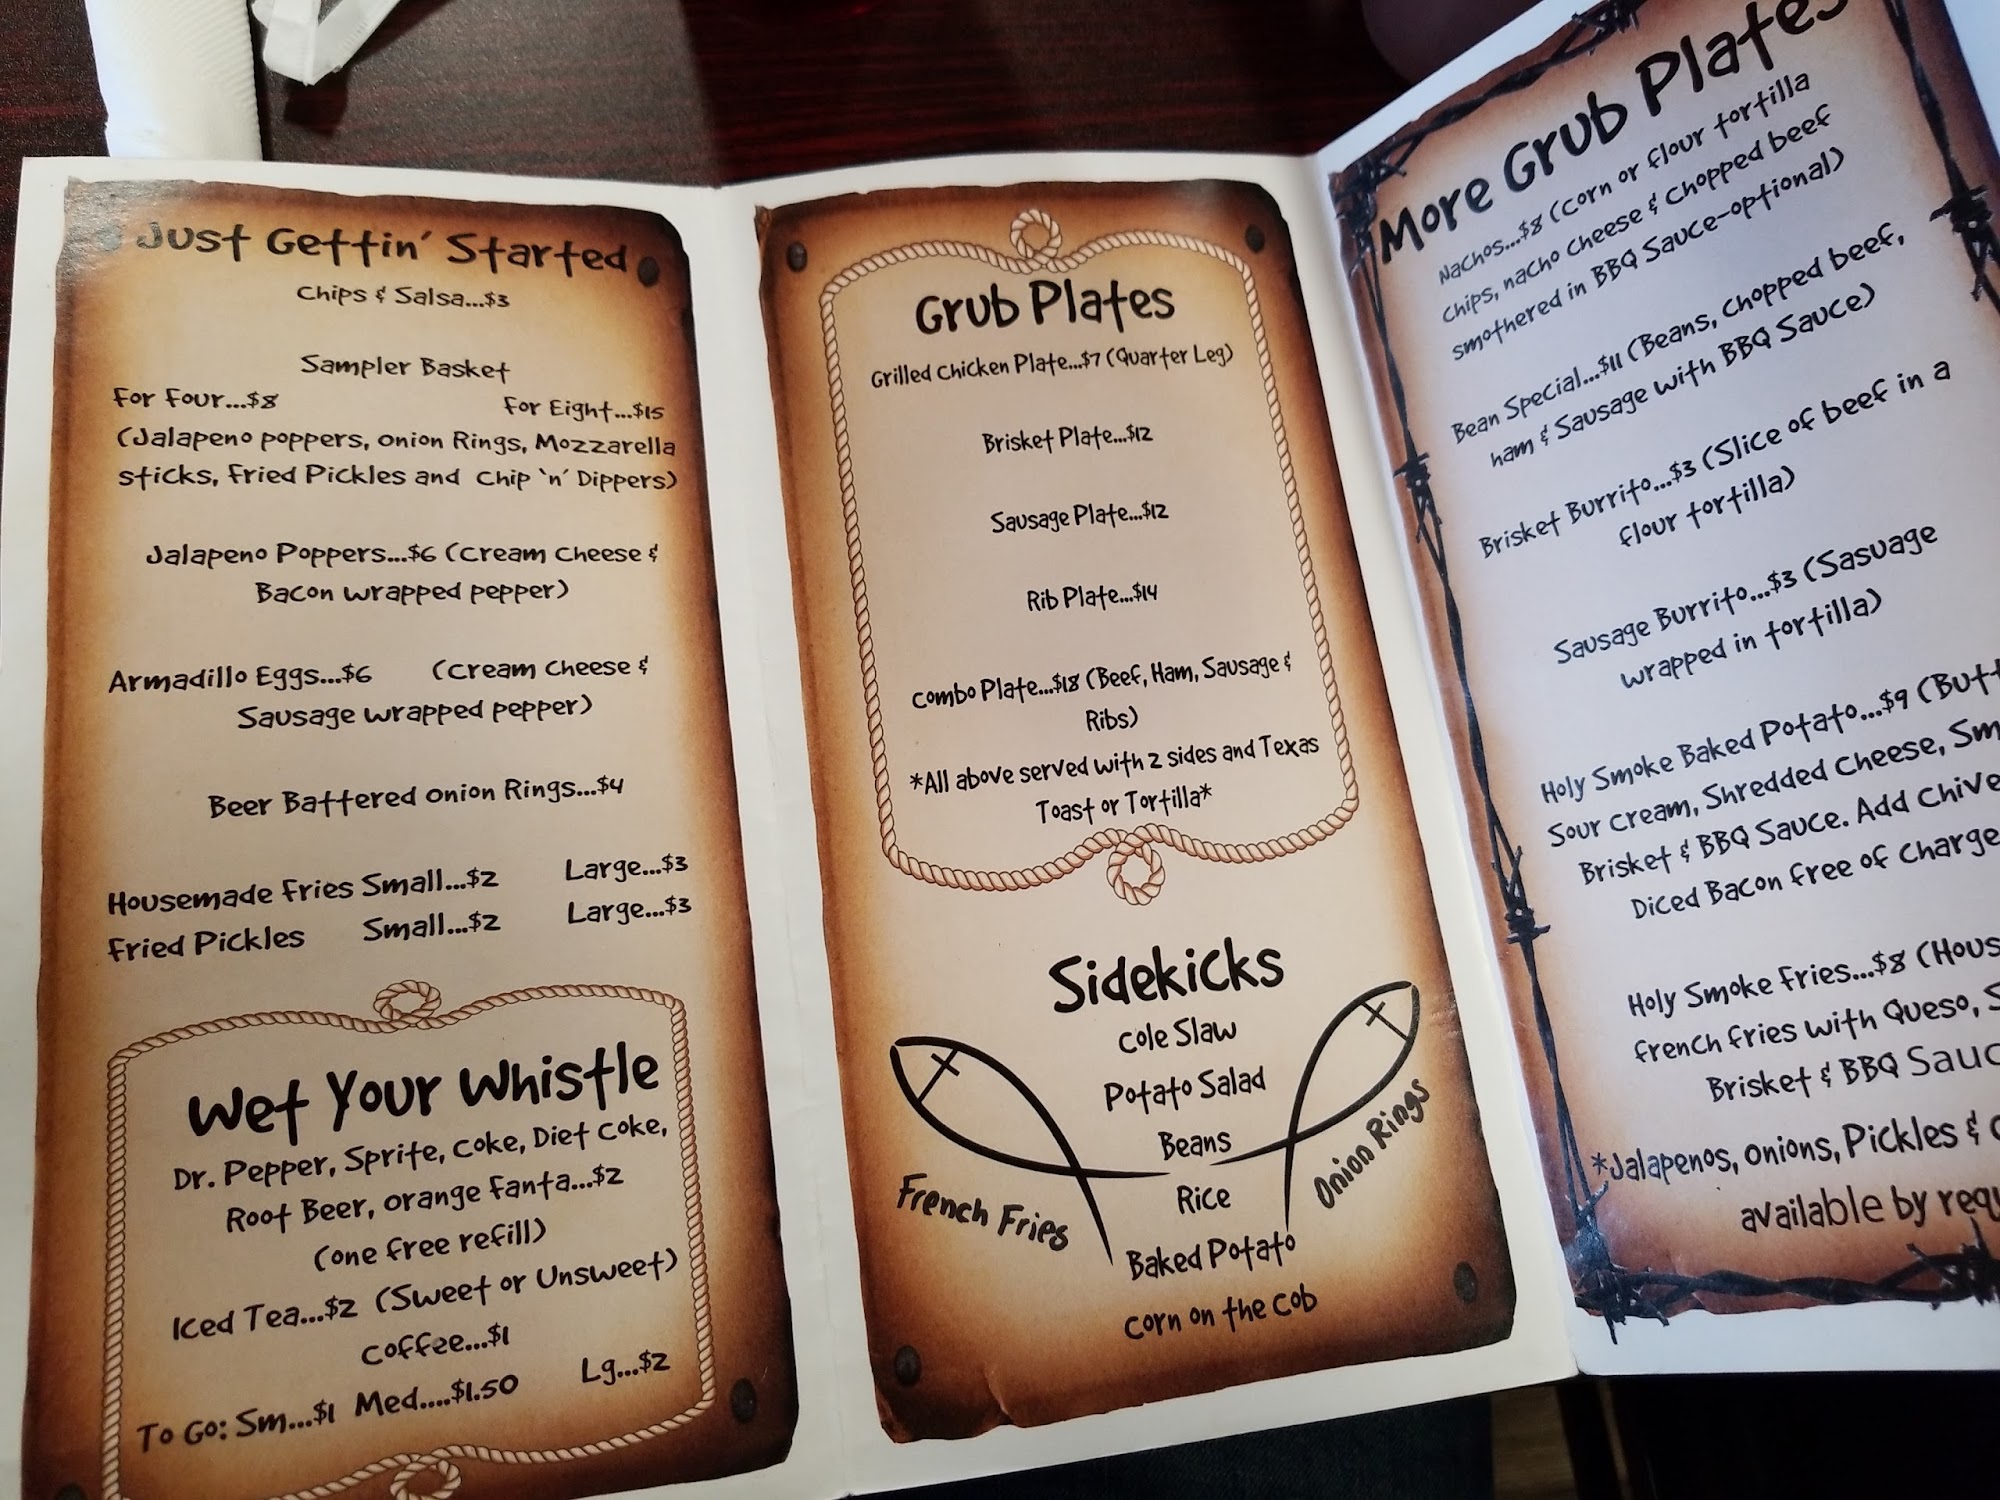 Just Gettin' Started
Chips & Salsa...$3
Sampler Basket
For Four...$8 For Eight...$15
(Jalapeno poppers, Onion Rings, Mozzarella
sticks, Fried Pickles and Chip 'n' Dippers)
Jalapeno Poppers...$6 (Cream Cheese &
Bacon wrapped pepper)
Armadillo Eggs...$6 (Cream Cheese &
Sausage wrapped pepper)
Beer Battered Onion Rings...$4
Housemade Fries Small...$2 Large...$3
Fried Pickles Small...$2 Large...$3
Wet Your Whistle
Dr. Pepper, Sprite, Coke, Diet Coke,
Root Beer, Orange Fanta...$2
(one free refill)
Iced Tea...$2 (Sweet or Unsweet)
Coffee...$1
To Go: Sm...$1 Med....$1.50 Lg...$2
Grub Plates
Grilled Chicken Plate...$7 (Quarter Leg)
Brisket Plate...$12
Sausage Plate...$12
Rib Plate...$14
Combo Plate...$18 (Beef, Ham, Sausage &
Ribs)
*All above served with 2 sides and Texas
Toast or Tortilla*
Sidekicks
Cole Slaw
Potato Salad
Beans
Rice
Baked Potato
Corn on the Cob
French Fries
Onion Rings
More Grub Plates
Nachos...$8 (Corn or flour tortilla
chips, nacho cheese & chopped beef
smothered in BBQ Sauce-optional)
Bean Special...$11 (Beans, Chopped beef,
ham & Sausage with BBQ Sauce)
Brisket Burrito...$3 (Slice of beef in a
flour tortilla)
Sausage Burrito...$3 (Sasuage
wrapped in tortilla)
Holy Smoke Baked Potato...$9 (Butt
Sour Cream, Shredded Cheese, Sm
Brisket & BBQ Sauce. Add Chive
Diced Bacon free of Charge
Holy Smoke Fries...$8 (Hous
french fries with Queso, S
Brisket & BBQ Sauc
*Jalapenos, Onions, Pickles &
available by requ